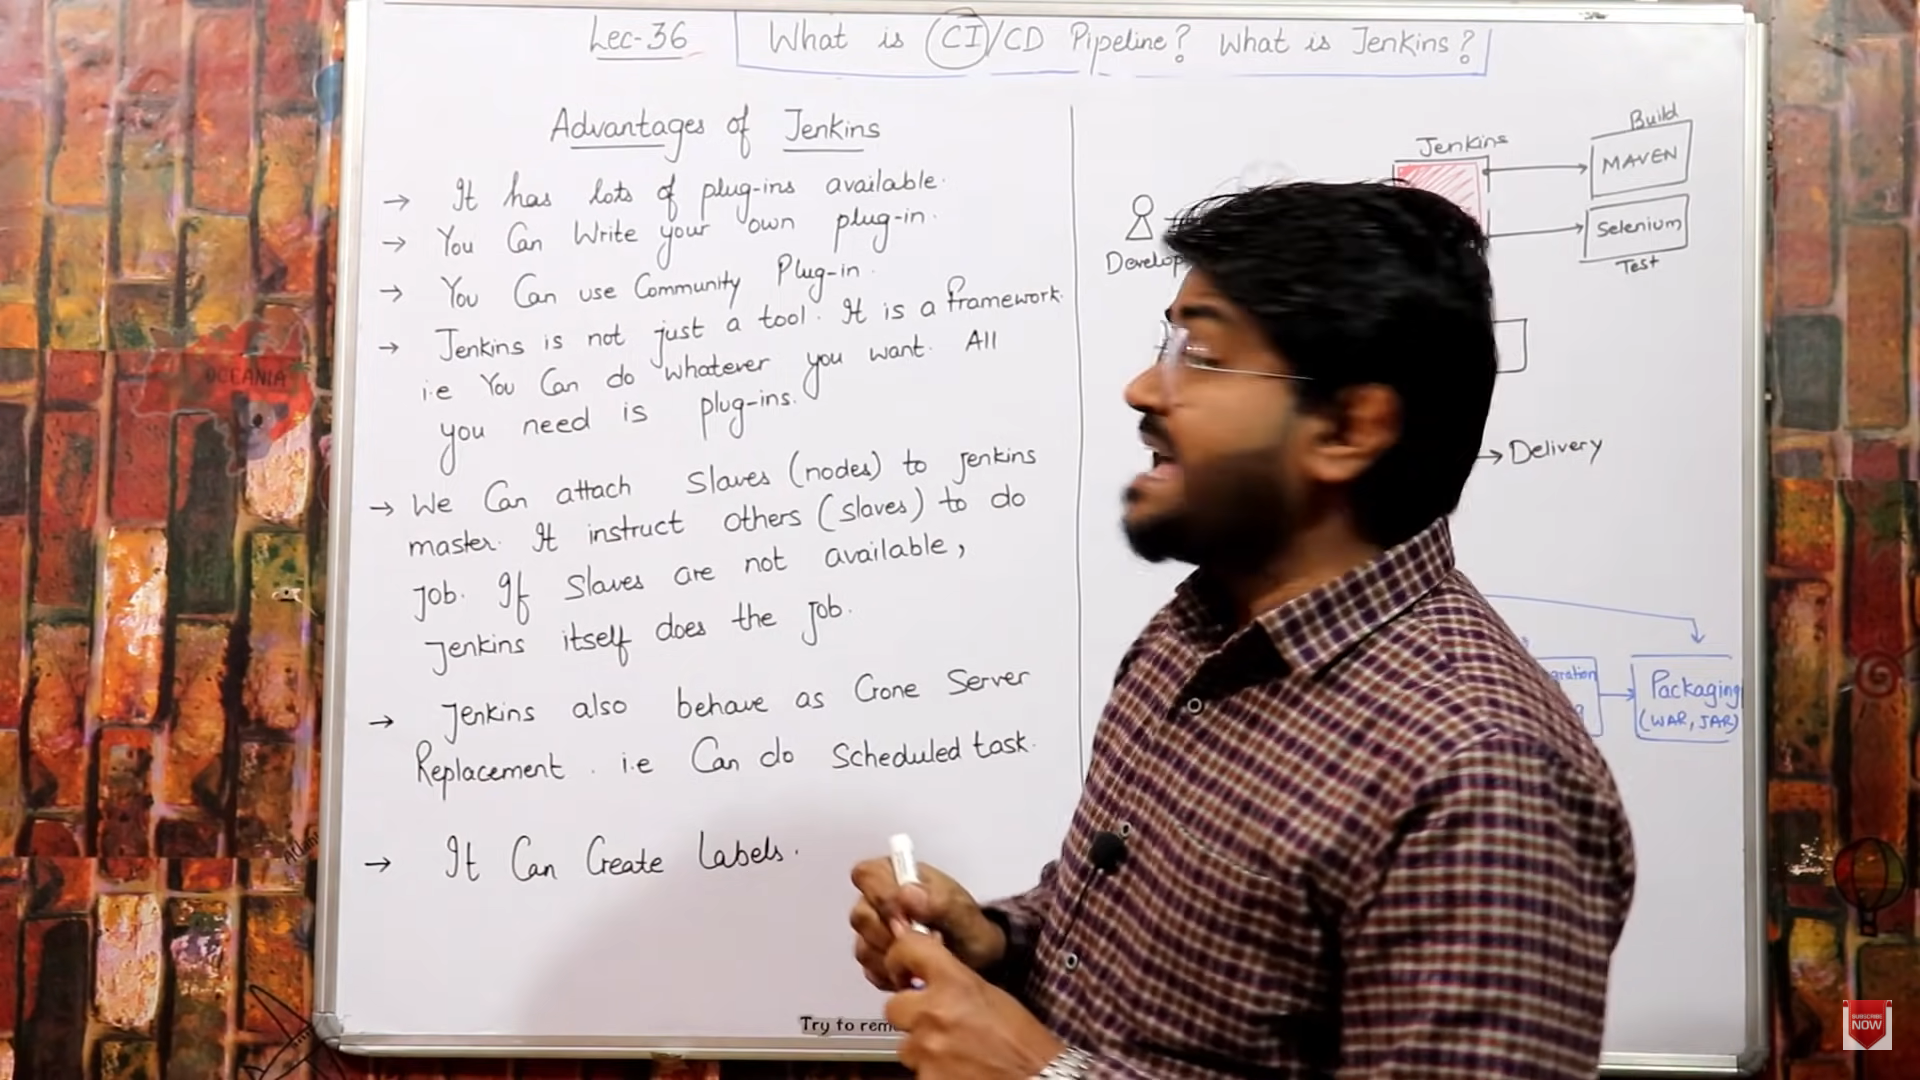 Lec-36
What is CI/CD Pipeline? What is Jenkins?
Advantages of Jenkins
→ It has lots of plug-ins available.
→ You Can Write your own plug-in.
→ You Can use Community Plug-in.
→ Jenkins is not just a tool. It is a framework.
i.e You Can do whatever you want. All
you need is plug-ins.
→ We Can attach Slaves (nodes) to Jenkins
master. It instruct others (slaves) to do
Job. If Slaves are not available,
Jenkins itself does the job.
→ Jenkins also behave as Crone Server
Replacement. i.e Can do Scheduled task.
→ It Can Create Labels.
Build
Jenkins
MAVEN
Selenium
Test
Develop
→ Delivery
gration
Packaging
(WAR, JAR)
Try to rem
OCEANIA
SUBSCRIBE
NOW